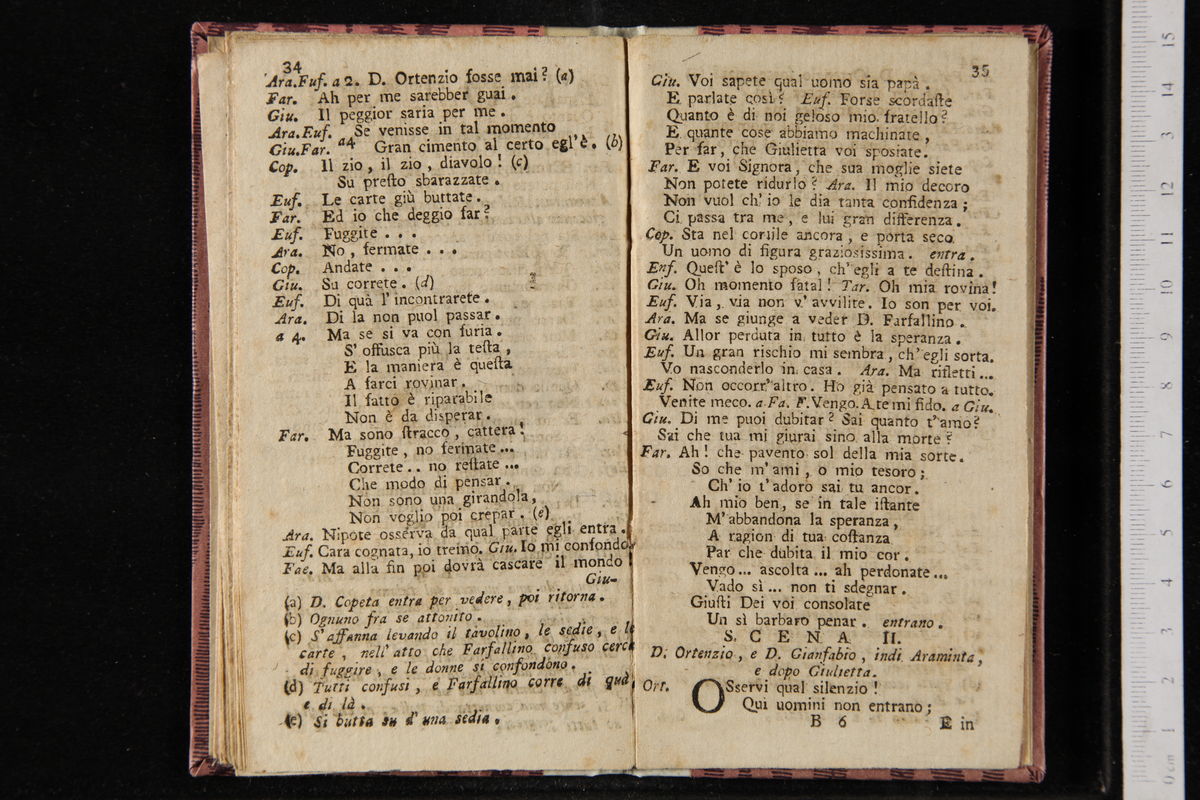 34
Ara.Euf. a 2. D. Ortenzio fosse mai? (a)
Far. Ah per me sarebber guai.
Giu. Il peggior saria per me.
Ara.Euf. Se venisse in tal momento
Giu.Far. a4 Gran cimento al certo egl'è. (b)
Cop. Il zio, il zio, diavolo! (c)
Su preſto sbarazzate.
Euf. Le carte giù buttate.
Far. Ed io che deggio far?
Euf. Fuggite . . .
Ara. No, fermate . . .
Cop. Andate . . .
Giu. Su correte. (d)
Euf. Di quà l'incontrarete.
Ara. Di la non puol passar.
a 4. Ma se si va con furia.
S'offusca più la teſta,
E la maniera è queſta
A farci rovinar.
Il fatto è riparabile
Non è da disperar.
Far. Ma sono ſtracco, cattera!
Fuggite, no fermate...
Correte.. no reſtate...
Che modo di pensar.
Non sono una girandola,
Non voglio poi crepar. (e)
Ara. Nipote osserva da qual parte egli entra.
Euf. Cara cognata, io tremo. Giu. Io mi confondo.
Fae. Ma alla fin poi dovrà cascare il mondo
Giu-
(a) D. Copeta entra per vedere, poi ritorna.
(b) Ognuno fra se attonito.
(c) S'affanna levando il tavolino, le sedie, e le
carte, nell'atto che Farfallino confuso cerca
di fuggire, e le donne si confondono.
(d) Tutti confusi, e Farfallino corre di quà,
e di là.
(e) Si butta su d'una sedia.
35
Giu. Voi sapete qual uomo sia papà.
E parlate così? Euf. Forse scordaſte
Quanto è di noi geloso mio fratello?
E quante cose abbiamo machinate,
Per far, che Giulietta voi sposiate.
Far. E voi Signora, che sua moglie siete
Non potete ridurlo? Ara. Il mio decoro
Non vuol ch'io le dia tanta confidenza;
Ci passa tra me, e lui gran differenza.
Cop. Sta nel cortile ancora, e porta seco
Un uomo di figura graziosissima. entra.
Enf. Queſt'è lo sposo, ch'egli a te deſtina.
Giu. Oh momento fatal! Tar. Oh mia rovina!
Euf. Via, via non v'avvilite. Io son per voi.
Ara. Ma se giunge a veder D. Farfallino.
Giu. Allor perduta in tutto è la speranza.
Euf. Un gran rischio mi sembra, ch'egli sorta.
Vo nasconderlo in casa. Ara. Ma rifletti...
Euf. Non occorr'altro. Ho già pensato a tutto.
Venite meco. a Fa. F. Vengo. A te mi fido. a Giu.
Giu. Di me puoi dubitar? Sai quanto t'amo?
Sai che tua mi giurai sino alla morte?
Far. Ah! che pavento sol della mia sorte.
So che m'ami, o mio tesoro;
Ch'io t'adoro sai tu ancor.
Ah mio ben, se in tale iſtante
M'abbandona la speranza,
A ragion di tua coſtanza
Par che dubita il mio cor.
Vengo... ascolta... ah perdonate...
Vado sì... non ti sdegnar.
Giuſti Dei voi consolate
Un sì barbaro penar. entrano.
SCENA II.
D. Ortenzio, e D. Gianfabio, indi Araminta,
e dopo Giulietta.
Ort. OSservi qual silenzio!
Qui uomini non entrano;
B 6 E in
15
14
13
12
11
10
9
8
7
6
5
4
3
2
1
0 cm